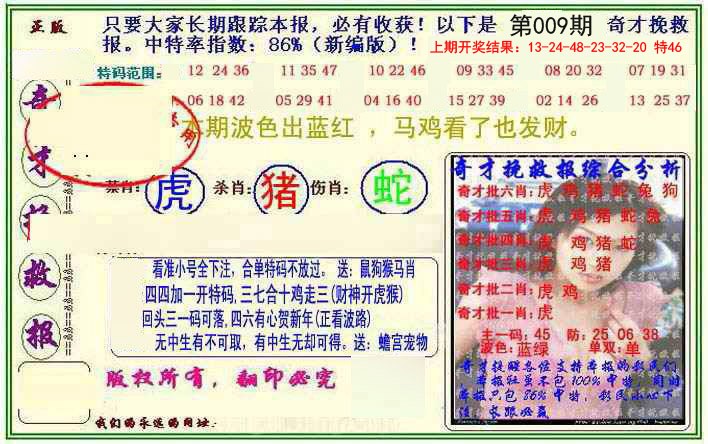 正版
只要大家长期跟踪本报，必有收获！以下是 第009期 奇才挽救
报。中特率指数：86%（新编版）！ 上期开奖结果：13-24-48-23-32-20 特46
特码范围： 12 24 36 11 35 47 10 22 46 09 33 45 08 20 32 07 19 31
06 18 42 05 29 41 04 16 40 15 27 39 02 14 26 13 25 37
本期波色出蓝红 ，马鸡看了也发财。
奇
才
救
报
禁肖： 虎 杀肖： 猪 伤肖： 蛇
看准小号全下注，合单特码不放过。 送：鼠狗猴马肖
四四加一开特码，三七合十鸡走三(财神开虎猴)
回头三一码可落，四六有心贺新年(正看波路)
无中生有不可取，有中生无却可得。送：蟾宫宠物
版权所有，翻印必究
我们的永远的网址：
奇才挽救报综合分析
奇才批六肖：虎 鸡 猪 蛇 兔 狗
奇才批五肖：虎 鸡 猪 蛇 兔
奇才批四肖：虎 鸡 猪 蛇
奇才批三肖：虎 鸡 猪
奇才批二肖：虎 鸡
奇才批一肖：虎
主一码：45 防：25 06 38
波色：蓝绿 单双：单
奇才提醒各位支持本报的彩民们
本报社虽不包100%中特，但时
本报只包86%中特，彩民小心下
注，长跟必赢